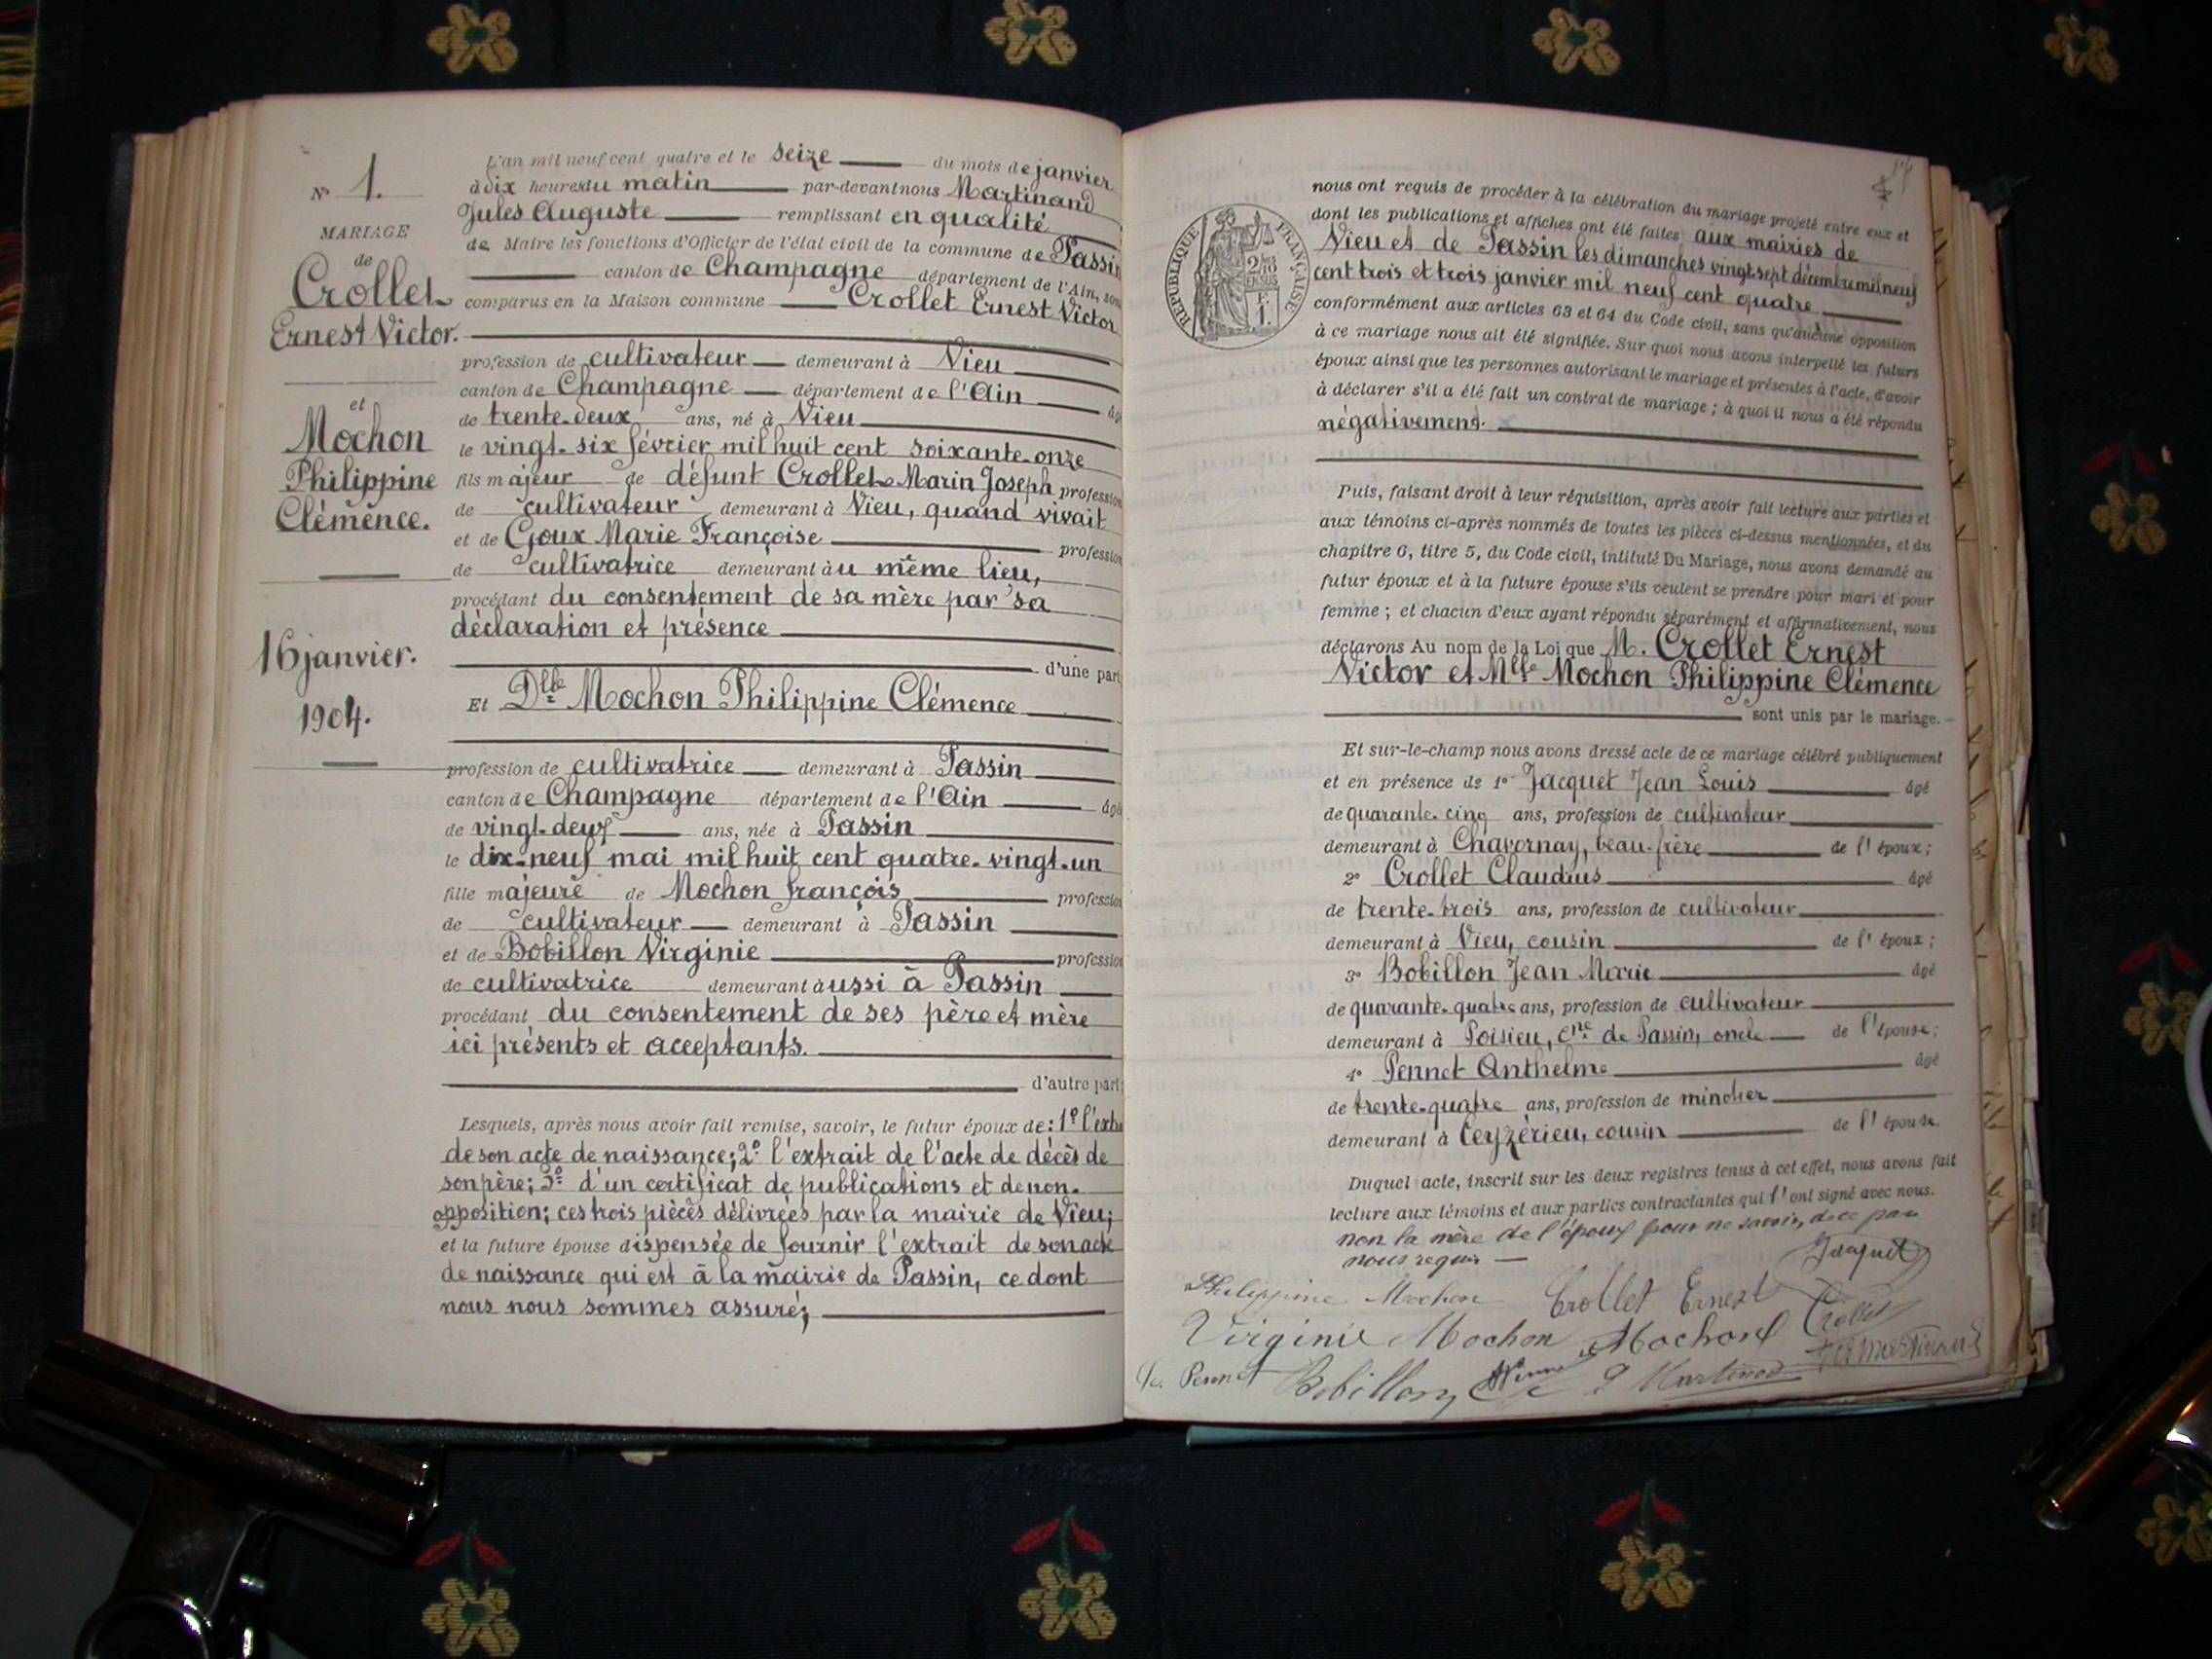 N° 1.
MARIAGE
de
Crollet
Ernest Victor.
et
Mochon
Philippine
Clémence.
16 janvier.
1904.
L'an mil neuf cent quatre et le seize du mois de janvier
à dix heures du matin par-devant nous Martinand
Jules Auguste remplissant en qualité
de Maire les fonctions d'Officier de l'état civil de la commune de Passin
canton de Champagne département de l'Ain, son
comparus en la Maison commune Crollet Ernest Victor
profession de cultivateur demeurant à Vieu
canton de Champagne département de l'Ain âg
de trente-deux ans, né à Vieu
le vingt-six février mil huit cent soixante-onze
fils majeur de défunt Crollet Marin Joseph profession
de cultivateur demeurant à Vieu, quand vivait
et de Goux Marie Françoise profession
de cultivatrice demeurant àu même lieu,
procédant du consentement de sa mère par sa
déclaration et présence
d'une part
Et Dlle Mochon Philippine Clémence
profession de cultivatrice demeurant à Passin
canton de Champagne département de l'Ain âgé
de vingt-deux ans, née à Passin
le dix-neuf mai mil huit cent quatre-vingt-un
fille majeure de Mochon françois profession
de cultivateur demeurant à Passin
et de Bobillon Virginie profession
de cultivatrice demeurant àussi à Passin
procédant du consentement de ses père et mère
ici présents et acceptants.
d'autre part;
Lesquels, après nous avoir fait remise, savoir, le futur époux de: 1° l'extra
de son acte de naissance; 2° l'extrait de l'acte de décès de
son père; 3° d'un certificat de publications et de non-
opposition; ces trois pièces délivrées par la mairie de Vieu;
et la future épouse dispensée de fournir l'extrait de son acte
de naissance qui est à la mairie de Passin, ce dont
nous nous sommes assuré;
RÉPUBLIQUE FRANÇAISE
2/10
EN SUS
1 F.
nous ont requis de procéder à la célébration du mariage projeté entre eux et
dont les publications et affiches ont été faites aux mairies de
Vieu et de Passin les dimanches vingt sept décembre mil neuf
cent trois et trois janvier mil neuf cent quatre
conformément aux articles 63 et 64 du Code civil, sans qu'aucune opposition
à ce mariage nous ait été signifiée. Sur quoi nous avons interpellé les futurs
époux ainsi que les personnes autorisant le mariage et présentes à l'acte, d'avoir
à déclarer s'il a été fait un contrat de mariage; à quoi il nous a été répondu
négativement.
Puis, faisant droit à leur réquisition, après avoir fait lecture aux parties et
aux témoins ci-après nommés de toutes les pièces ci-dessus mentionnées, et du
chapitre 6, titre 5, du Code civil, intitulé Du Mariage, nous avons demandé au
futur époux et à la future épouse s'ils veulent se prendre pour mari et pour
femme; et chacun d'eux ayant répondu séparément et affirmativement, nous
déclarons Au nom de la Loi que M. Crollet Ernest
Victor et Mlle Mochon Philippine Clémence
sont unis par le mariage.
Et sur-le-champ nous avons dressé acte de ce mariage célébré publiquement
et en présence de 1° Jacquet Jean Louis âgé
de quarante-cinq ans, profession de cultivateur
demeurant à Chavornay, beau-frère de l'époux;
2° Crollet Claudius âgé
de trente-trois ans, profession de cultivateur
demeurant à Vieu, cousin de l'époux;
3° Bobillon Jean Marie âgé
de quarante-quatre ans, profession de cultivateur
demeurant à Poisieu, Cne de Passin, oncle de l'épouse;
4° Pennet Anthelme âgé
de trente-quatre ans, profession de mincier
demeurant à Ceyzérieu, cousin de l'épouse.
Duquel acte, inscrit sur les deux registres tenus à cet effet, nous avons fait
lecture aux témoins et aux parties contractantes qui l'ont signé avec nous.
non la mère de l'époux pour ne savoir, de ce par
nous requis
Jacquet
Philippine Mochon Crollet Ernest Crollet
Virginie Mochon Mochon JA Martinand
Pennet Bobillon